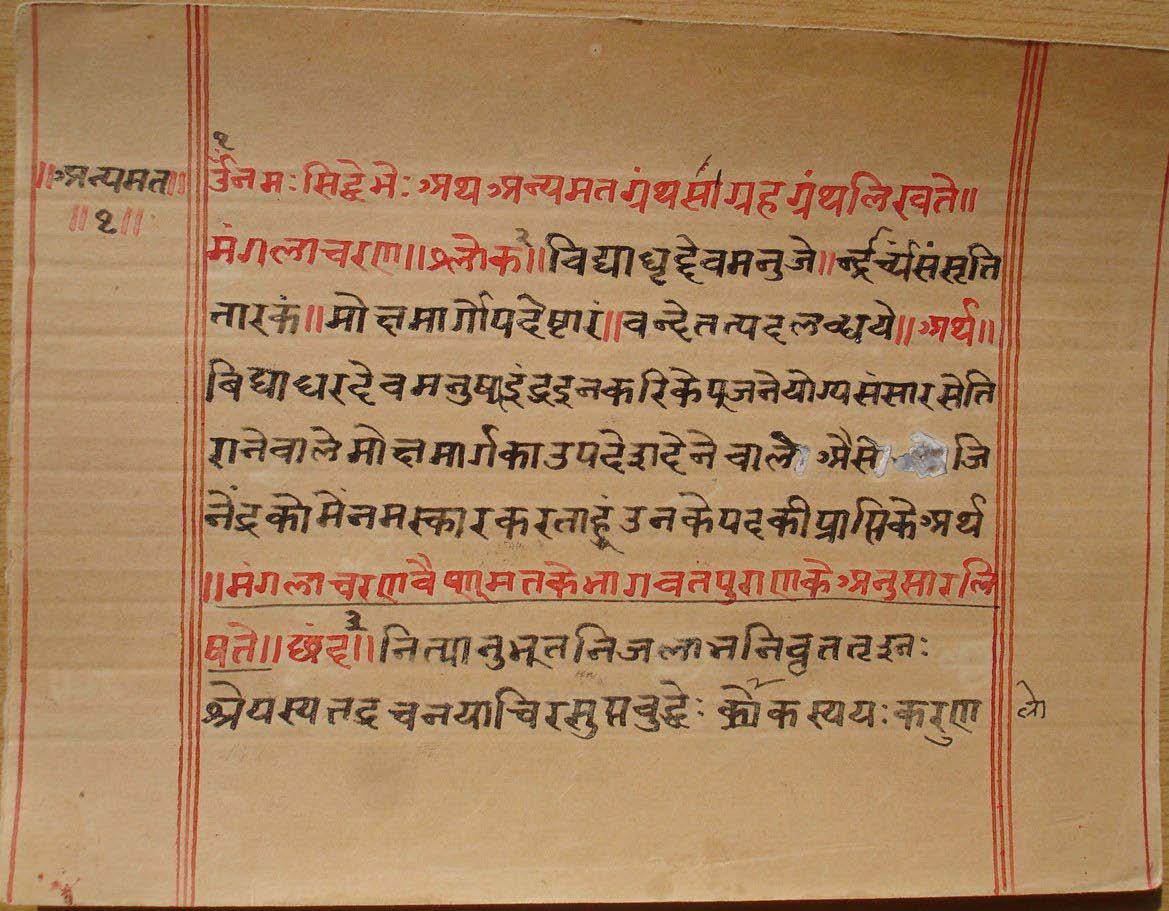 ॥अन्यमत॥
॥१॥
१
ॐनमःसिद्धेभेःअथअन्यमतग्रंथसाग्रहग्रंथलिख्वते॥
मंगलाचरण॥श्लोक॥२विद्याधृद्देवमनुजे॥र्न्द्रैर्च्यंसंसृति
तारकं॥मोक्षमार्गोपदेष्टारं॥वन्देतत्पदलब्धये॥अर्थ॥
बिद्याधरदेवमनुष्यइंद्रइनकरिकेपूजनेयोग्यसंसारसेति
रानेवालेमोक्षमार्गकाउपदेशदेनेवाले अैसे जि
नेंद्रकोमैंनमस्कारकरताहुंउनकेपदकीप्राप्तिकेअर्थ
॥मंगलाचरणवैष्णमतकेभागवतपुराणकेअनुसारलि
षते॥छंद॥३नित्यानुभूतनिजलाभनिवृततृश्नः
श्रेयस्यतद्रचनयाचिरसुप्तबुद्धेः कस्ययःकरुण
लो